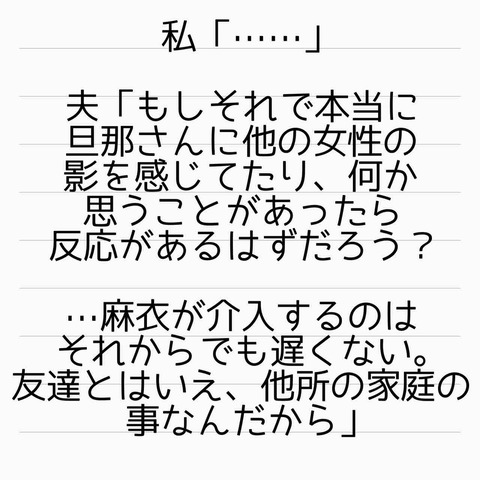 私「……」
夫「もしそれで本当に
旦那さんに他の女性の
影を感じてたり、何か
思うことがあったら
反応があるはずだろう？
…麻衣が介入するのは
それからでも遅くない。
友達とはいえ、他所の家庭の
事なんだから」